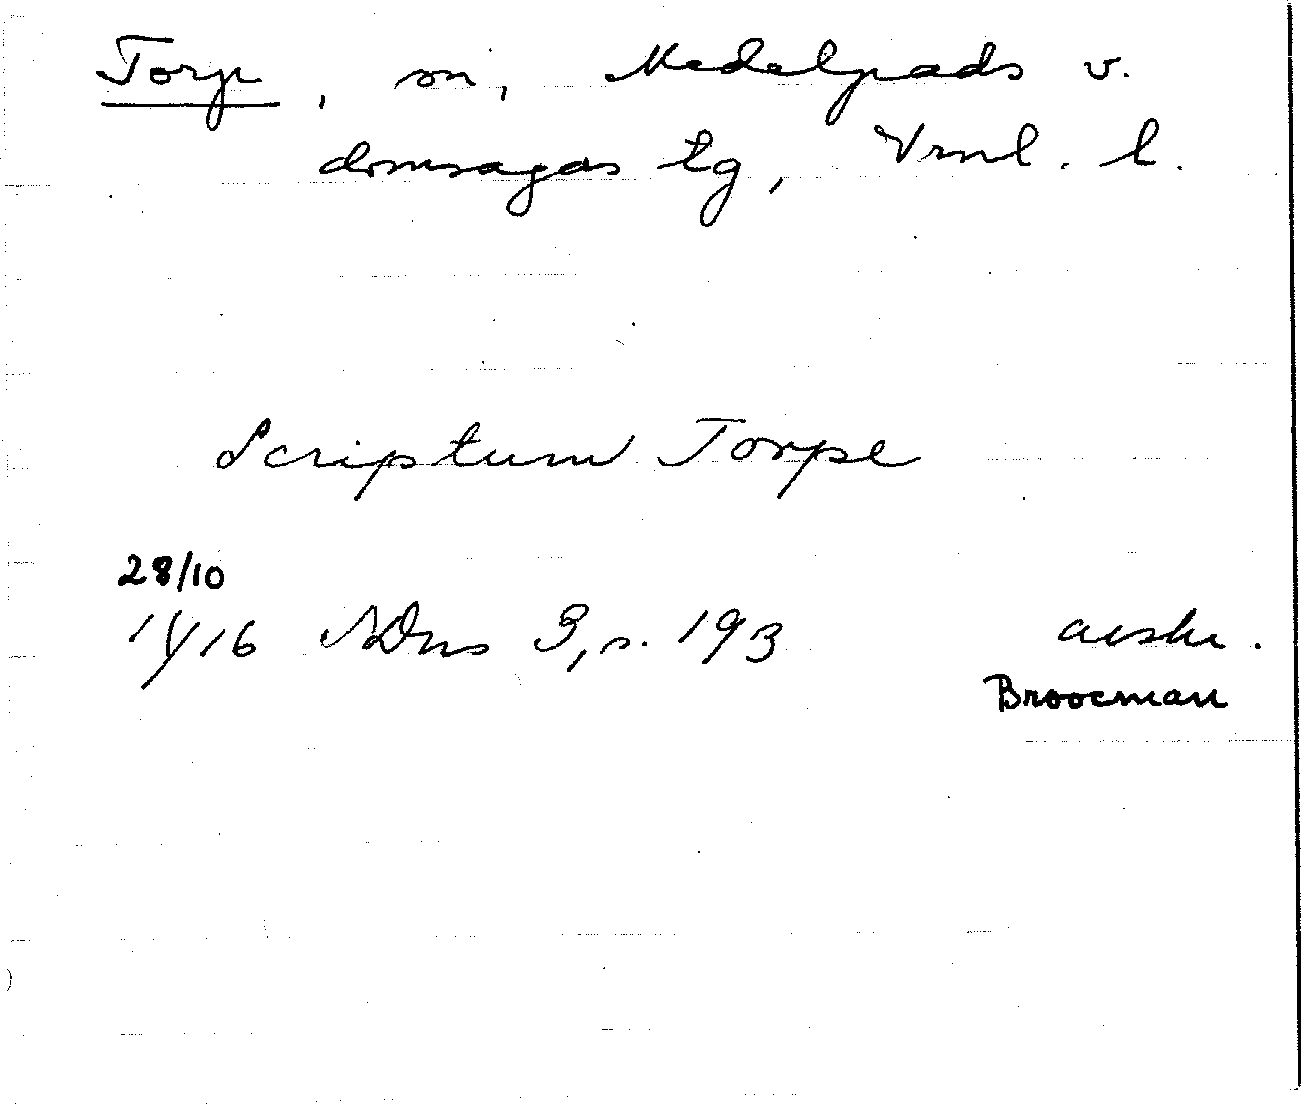 Torp, sn, Medelpads v.
domsagas tg, Vrnl. l.
Scriptum Torpe
28/10
1416 NDns 3, s. 193 avskr.
Broocman